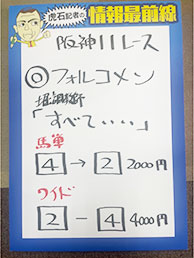 虎石記者の
情報最前線
阪神11レース
◎フォルコメン
「すべていい」
馬単
4→2 2000円
ワイド
2-4 4000円